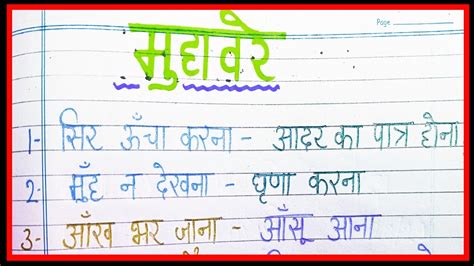 Page
मुहावरे
1- सिर ऊँचा करना - आदर का पात्र होना
2- मुँह न देखना - घृणा करना
3- आँख भर जाना - आँसू आना